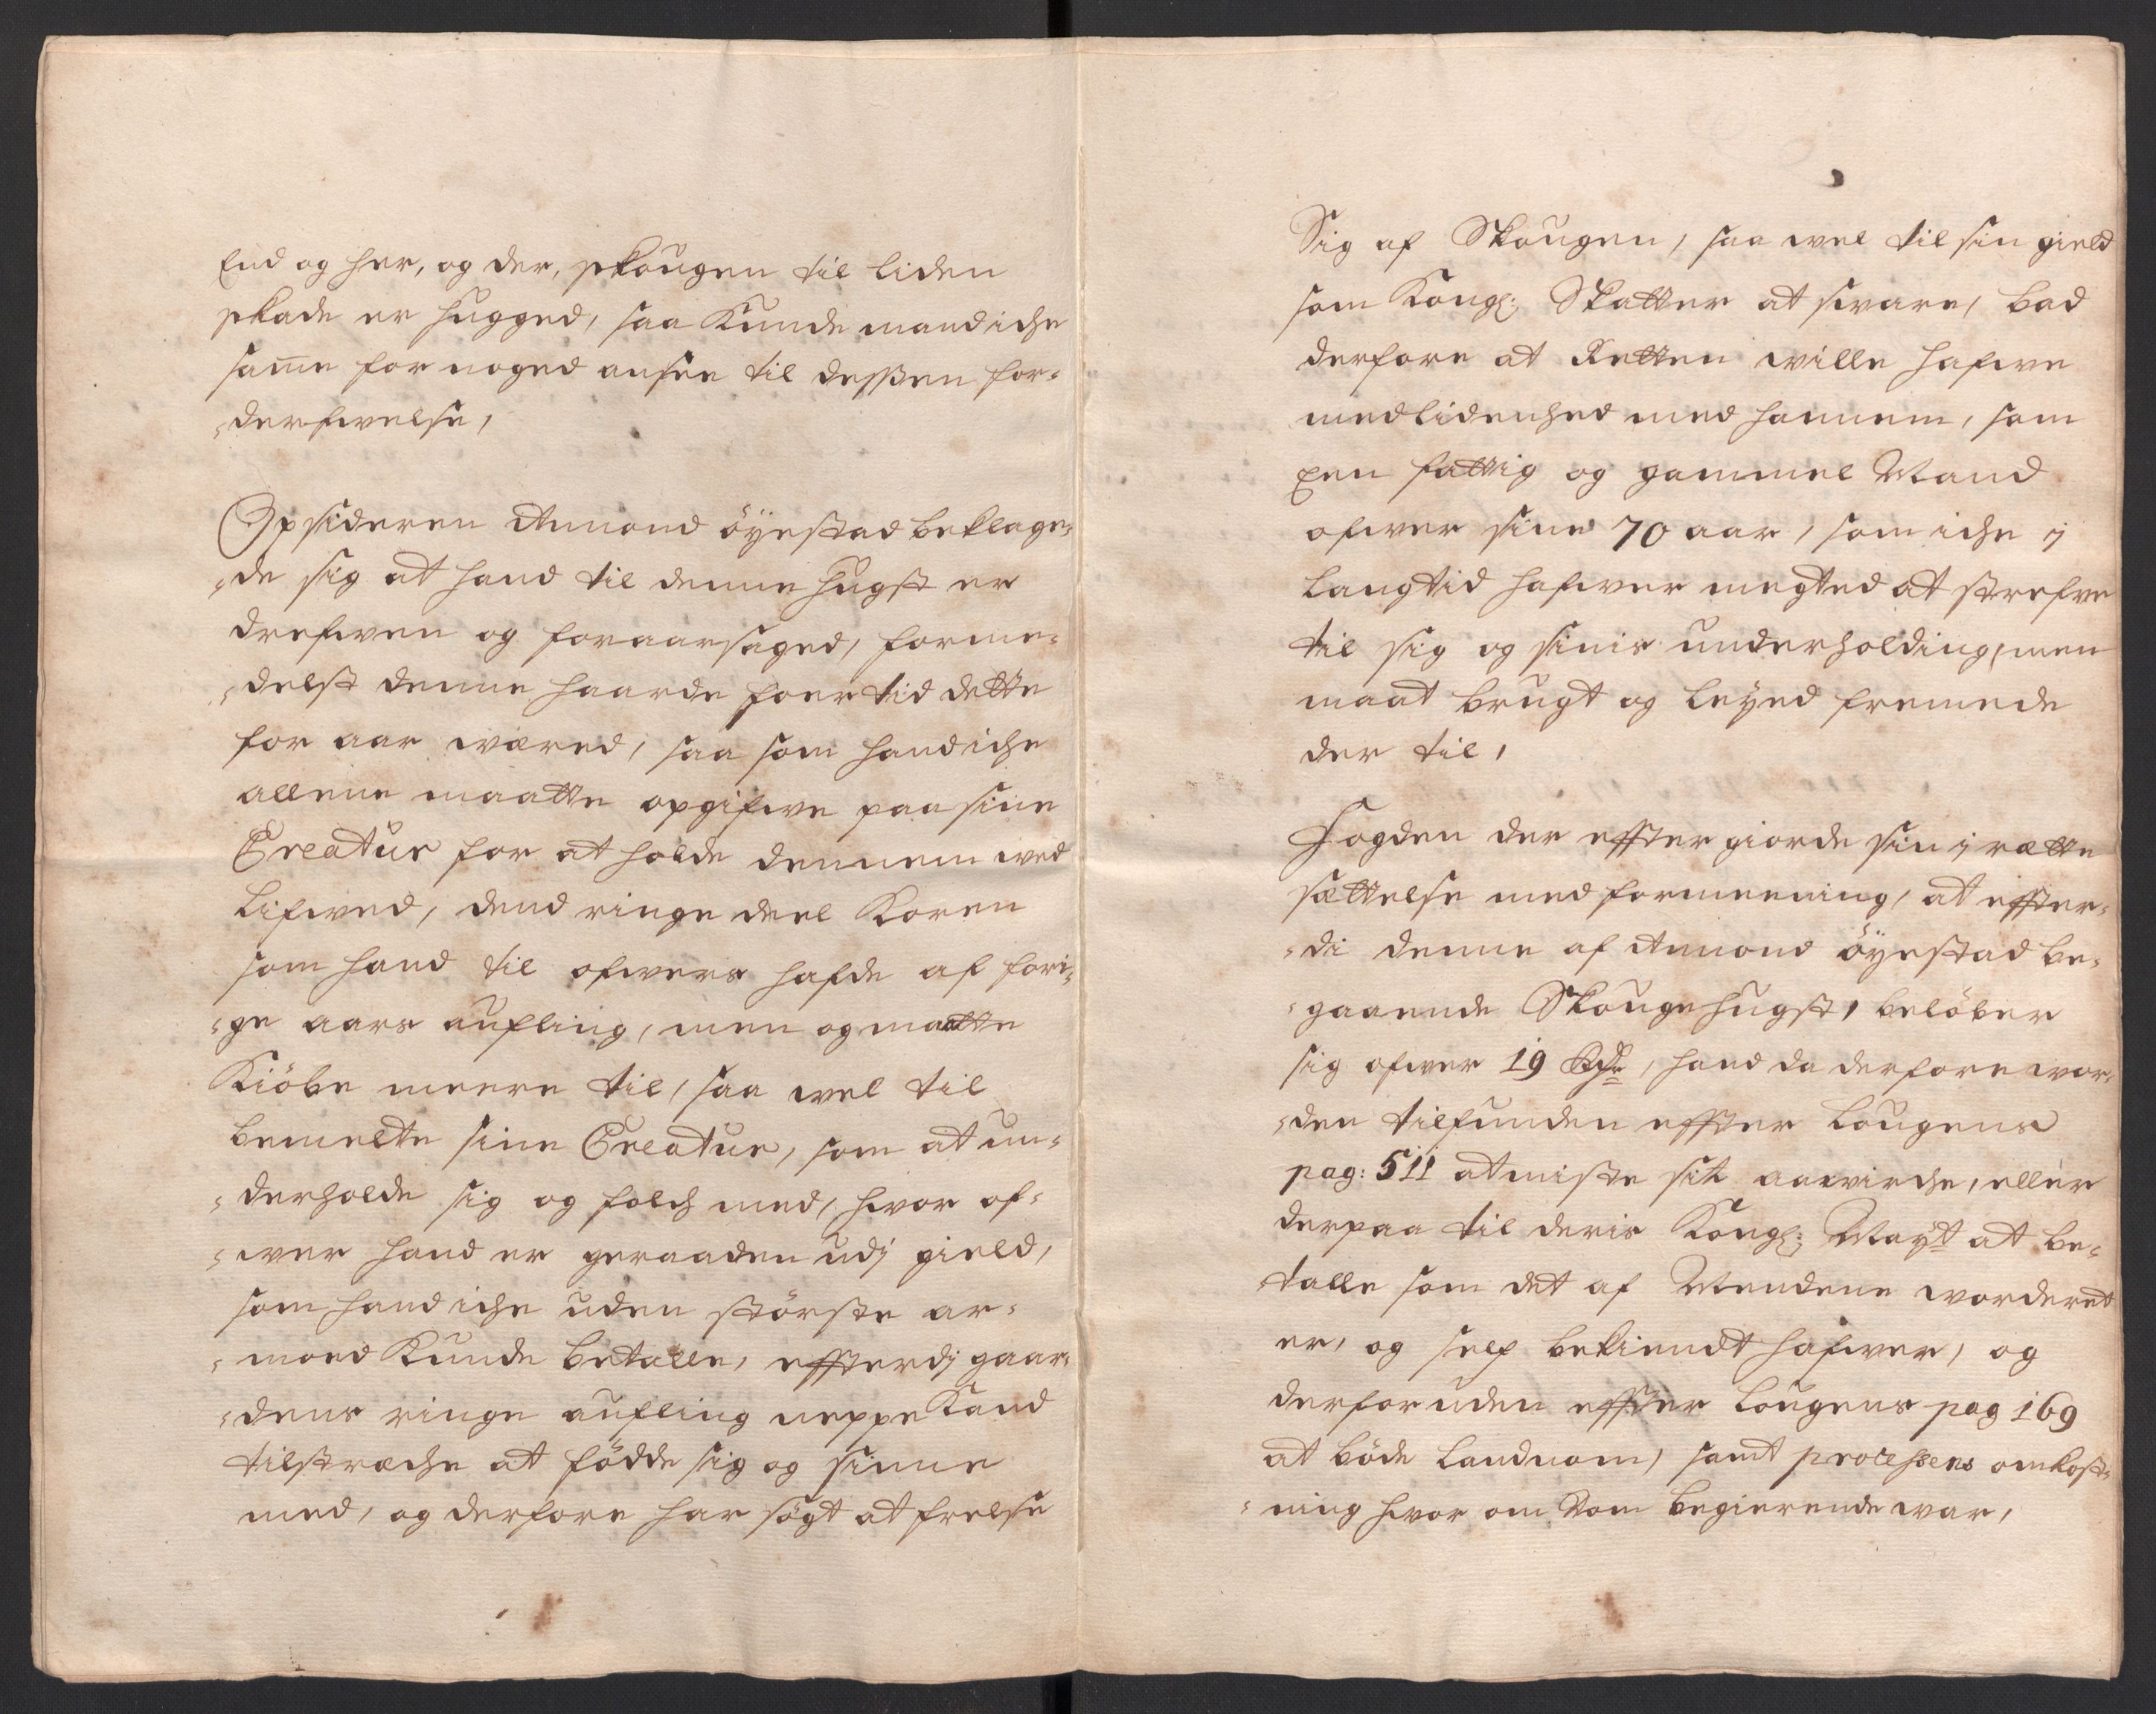 End og her, og der, skougen til liden
skade er hugged, saa Kunde mand iche
same for noged ansee til dessen for-
-derfwelse,
Opsideren Amond öyestad beklage-
-de sig at hand til denne hugst er
drefwen og foraarsaged, forme-
-delst denne haarde foer tid dette
for aar wæred, saa som hand iche
allene maatte opgifwe paa sine
Creatur for at holde dennem wed
Lifwed, dend ringe deel Koren
som hand til ofwers hafde af fori-
-ge aars aufling, men og maatte
Kiöbe meere til, saa wel til
bemelte sine Creatur, som at un-
-derholde sig og folch med, hwor of-
-wer hand er geraaden udj gield,
som hand iche uden störste ar-
-moed Kunde betalle, effterdj gaar-
-dens ringe aufling neppe Kand
tilstræche at födde sig og sinne
med, og derfore har sögt at frelse
Sig af Skougen, saa wel til sin gield
som Kongl: Skatter at svare, bad
derfore at Retten wille hafwe
medlidenhed med hannem, som
Een fattig og gammel Mand
ofwer sine 70 aar, som iche j
Langtid hafwer megted at strefve
til sig og sinis underholding, men
maat brugt og leyed fremede
der til,
Fogden der effter giorde sin j rætte
sættelse med formeening, at effter-
-di denne af Amond öyestad be-
-gaaende Skouge hugst, belöber
sig ofwer 19 Rdr, hand da derfore wor-
-den tilfunden effter Lougens
pag: 511 at miste sit aawirche, eller
derpaa til deris Kongl: Mayt at be-
-talle som det af Mendene worderet
er, og self bekiendt hafwer, og
derforuden effter Lougens pag 169
at böde Landnam, samt processens omkost-
-ning hwor om dom begierende war,